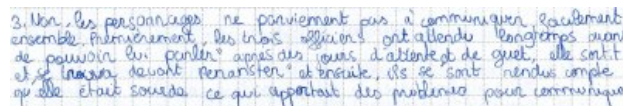 3. Non, les personnages ne parviennent pas à communiquer facilement
ensemble. Premièrement, les trois officiers ont attendu longtemps avant
de pouvoir lui parler "après des jours d'attente et de guet, elle sort
et se trouva devant" et ensuite, ils se sont rendus compte
qu'elle était sourde ce qui apportait des problèmes pour communiquer